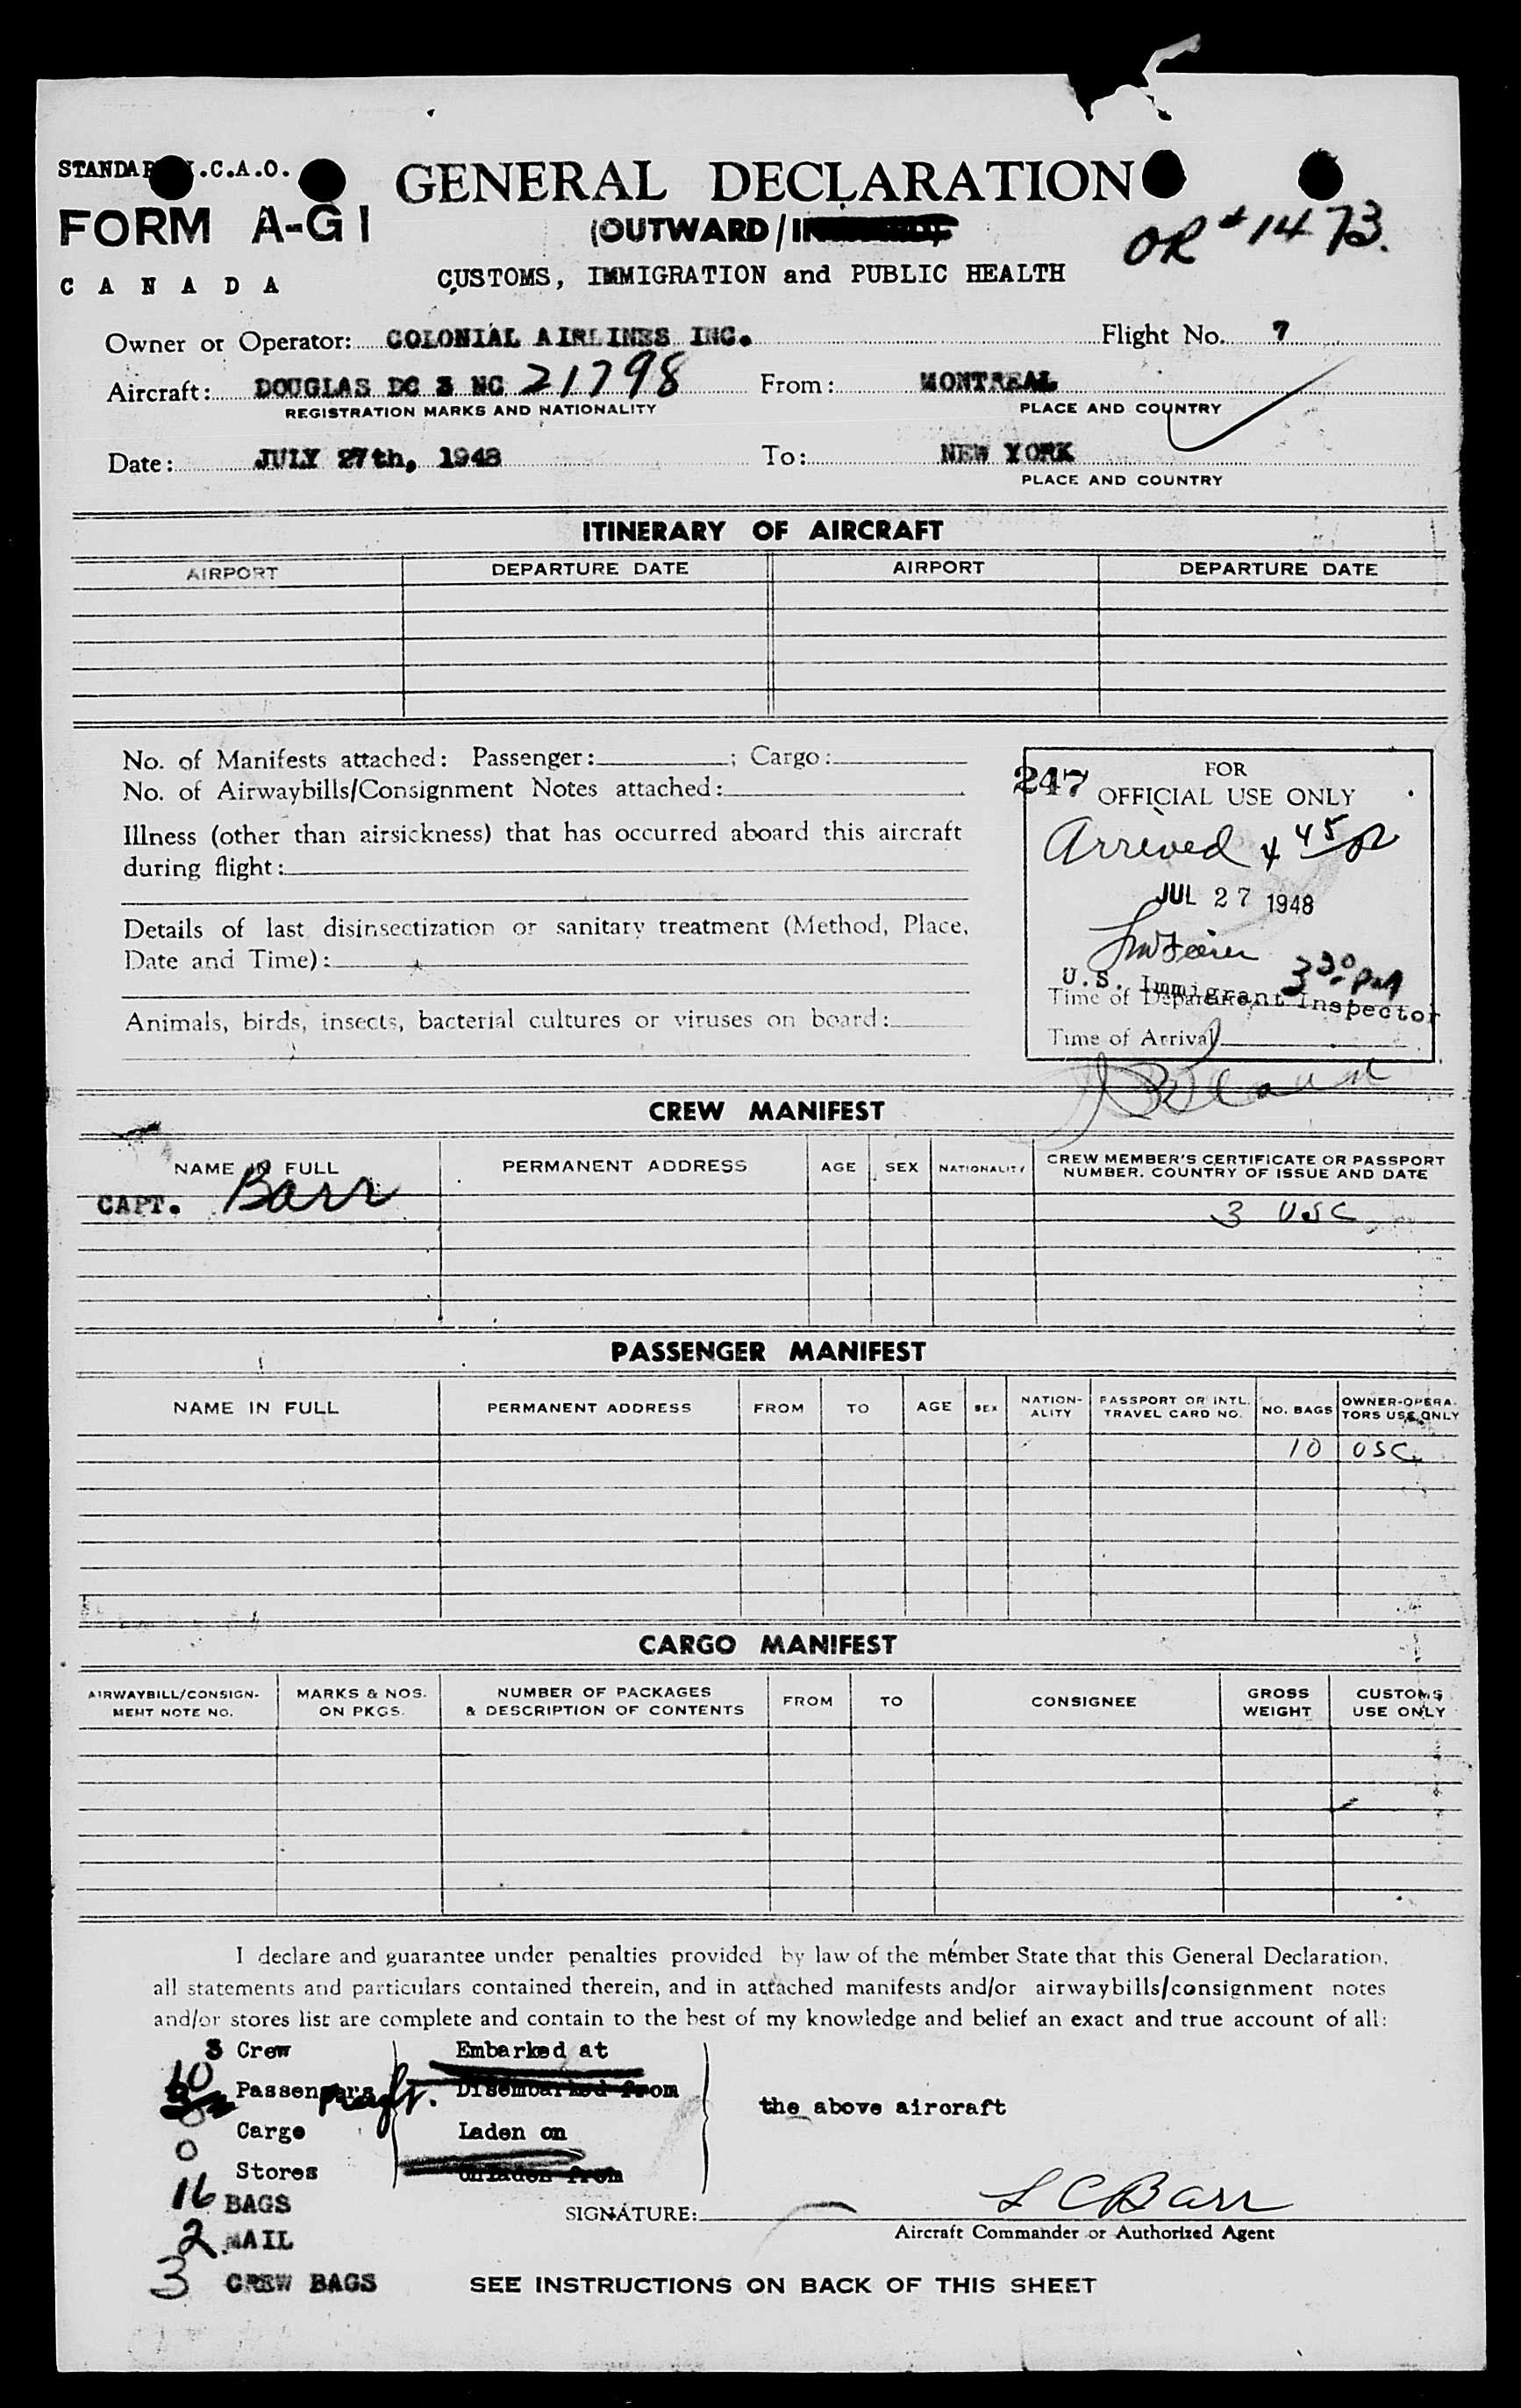 STANDARD I.C.A.O.
FORM A-G1
CANADA
GENERAL DECLARATION
(OUTWARD/
CUSTOMS, IMMIGRATION and PUBLIC HEALTH
OR #1473.
Owner or Operator: COLONIAL AIRLINES INC. Flight No. 7
Aircraft: DOUGLAS DC 3 NC 21798 From: MONTREAL
REGISTRATION MARKS AND NATIONALITY PLACE AND COUNTRY
Date: JULY 27th, 1948 To: NEW YORK
PLACE AND COUNTRY
ITINERARY OF AIRCRAFT
AIRPORT DEPARTURE DATE AIRPORT DEPARTURE DATE
No. of Manifests attached: Passenger: ; Cargo:
No. of Airwaybills/Consignment Notes attached:
Illness (other than airsickness) that has occurred aboard this aircraft
during flight:
Details of last disinsectization or sanitary treatment (Method, Place,
Date and Time):
Animals, birds, insects, bacterial cultures or viruses on board:
247
FOR
OFFICIAL USE ONLY
Arrived 4 45 p
JUL 27 1948
U.S. Immigrant Inspector
Time of Departure 3 30 PM
Time of Arrival
CREW MANIFEST
NAME IN FULL PERMANENT ADDRESS AGE SEX NATIONALITY CREW MEMBER'S CERTIFICATE OR PASSPORT
NUMBER. COUNTRY OF ISSUE AND DATE
CAPT. Barr 3 USC
PASSENGER MANIFEST
NAME IN FULL PERMANENT ADDRESS FROM TO AGE SEX NATION-
ALITY PASSPORT OR INTL.
TRAVEL CARD NO. NO. BAGS OWNER-OPERA-
TORS USE ONLY
10 USC
CARGO MANIFEST
AIRWAYBILL/CONSIGN-
MENT NOTE NO. MARKS & NOS.
ON PKGS. NUMBER OF PACKAGES
& DESCRIPTION OF CONTENTS FROM TO CONSIGNEE GROSS
WEIGHT CUSTOMS
USE ONLY
I declare and guarantee under penalties provided by law of the member State that this General Declaration,
all statements and particulars contained therein, and in attached manifests and/or airwaybills/consignment notes
and/or stores list are complete and contain to the best of my knowledge and belief an exact and true account of all:
3 Crew Embarked at
10 Passengers Disembarked from
the above aircraft
0 Cargo Laden on
0 Stores Unladen from
16 BAGS
SIGNATURE: L C Barr
2 MAIL
Aircraft Commander or Authorized Agent
3 CREW BAGS
SEE INSTRUCTIONS ON BACK OF THIS SHEET